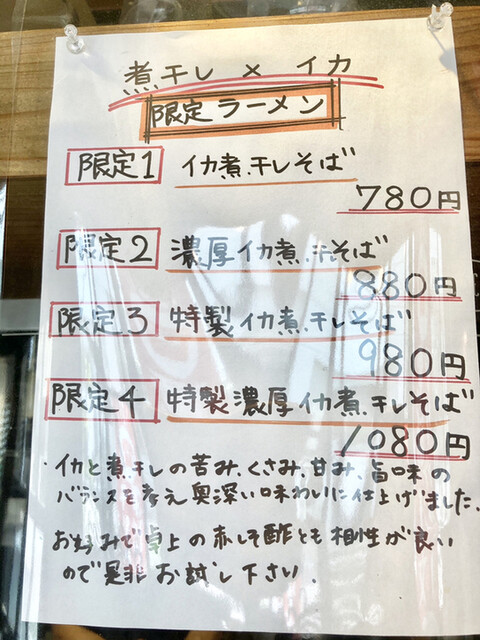 煮干し × イカ
限定ラーメン
限定1 イカ煮干しそば
780円
限定2 濃厚イカ煮干そば
880円
限定3 特製イカ煮干しそば
980円
限定4 特製濃厚イカ煮干しそば
1080円
・イカと煮干しの苦み、くさみ、甘み、旨味の
バランスを考え奥深い味わいに仕上げました。
お好みで卓上の赤しそ酢とも相性が良い
ので是非お試し下さい.